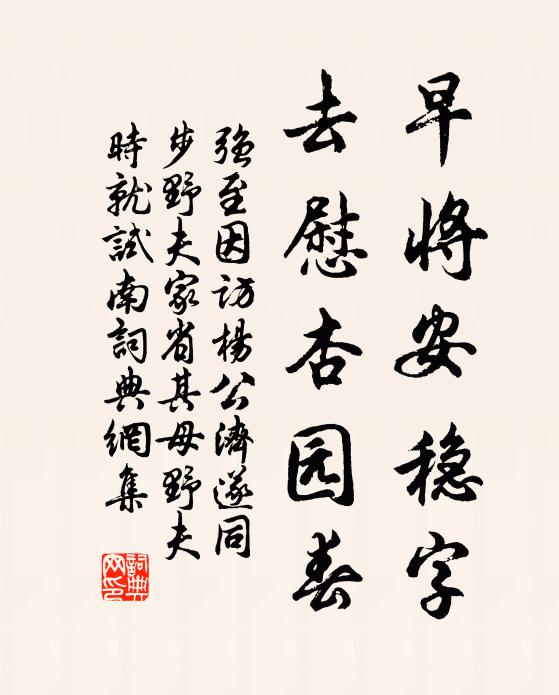 早将安稳字
去慰杏园春
強至因訪楊公濟遂同
步野夫家省其母野夫
時就試南詞典網集
詞典
网印